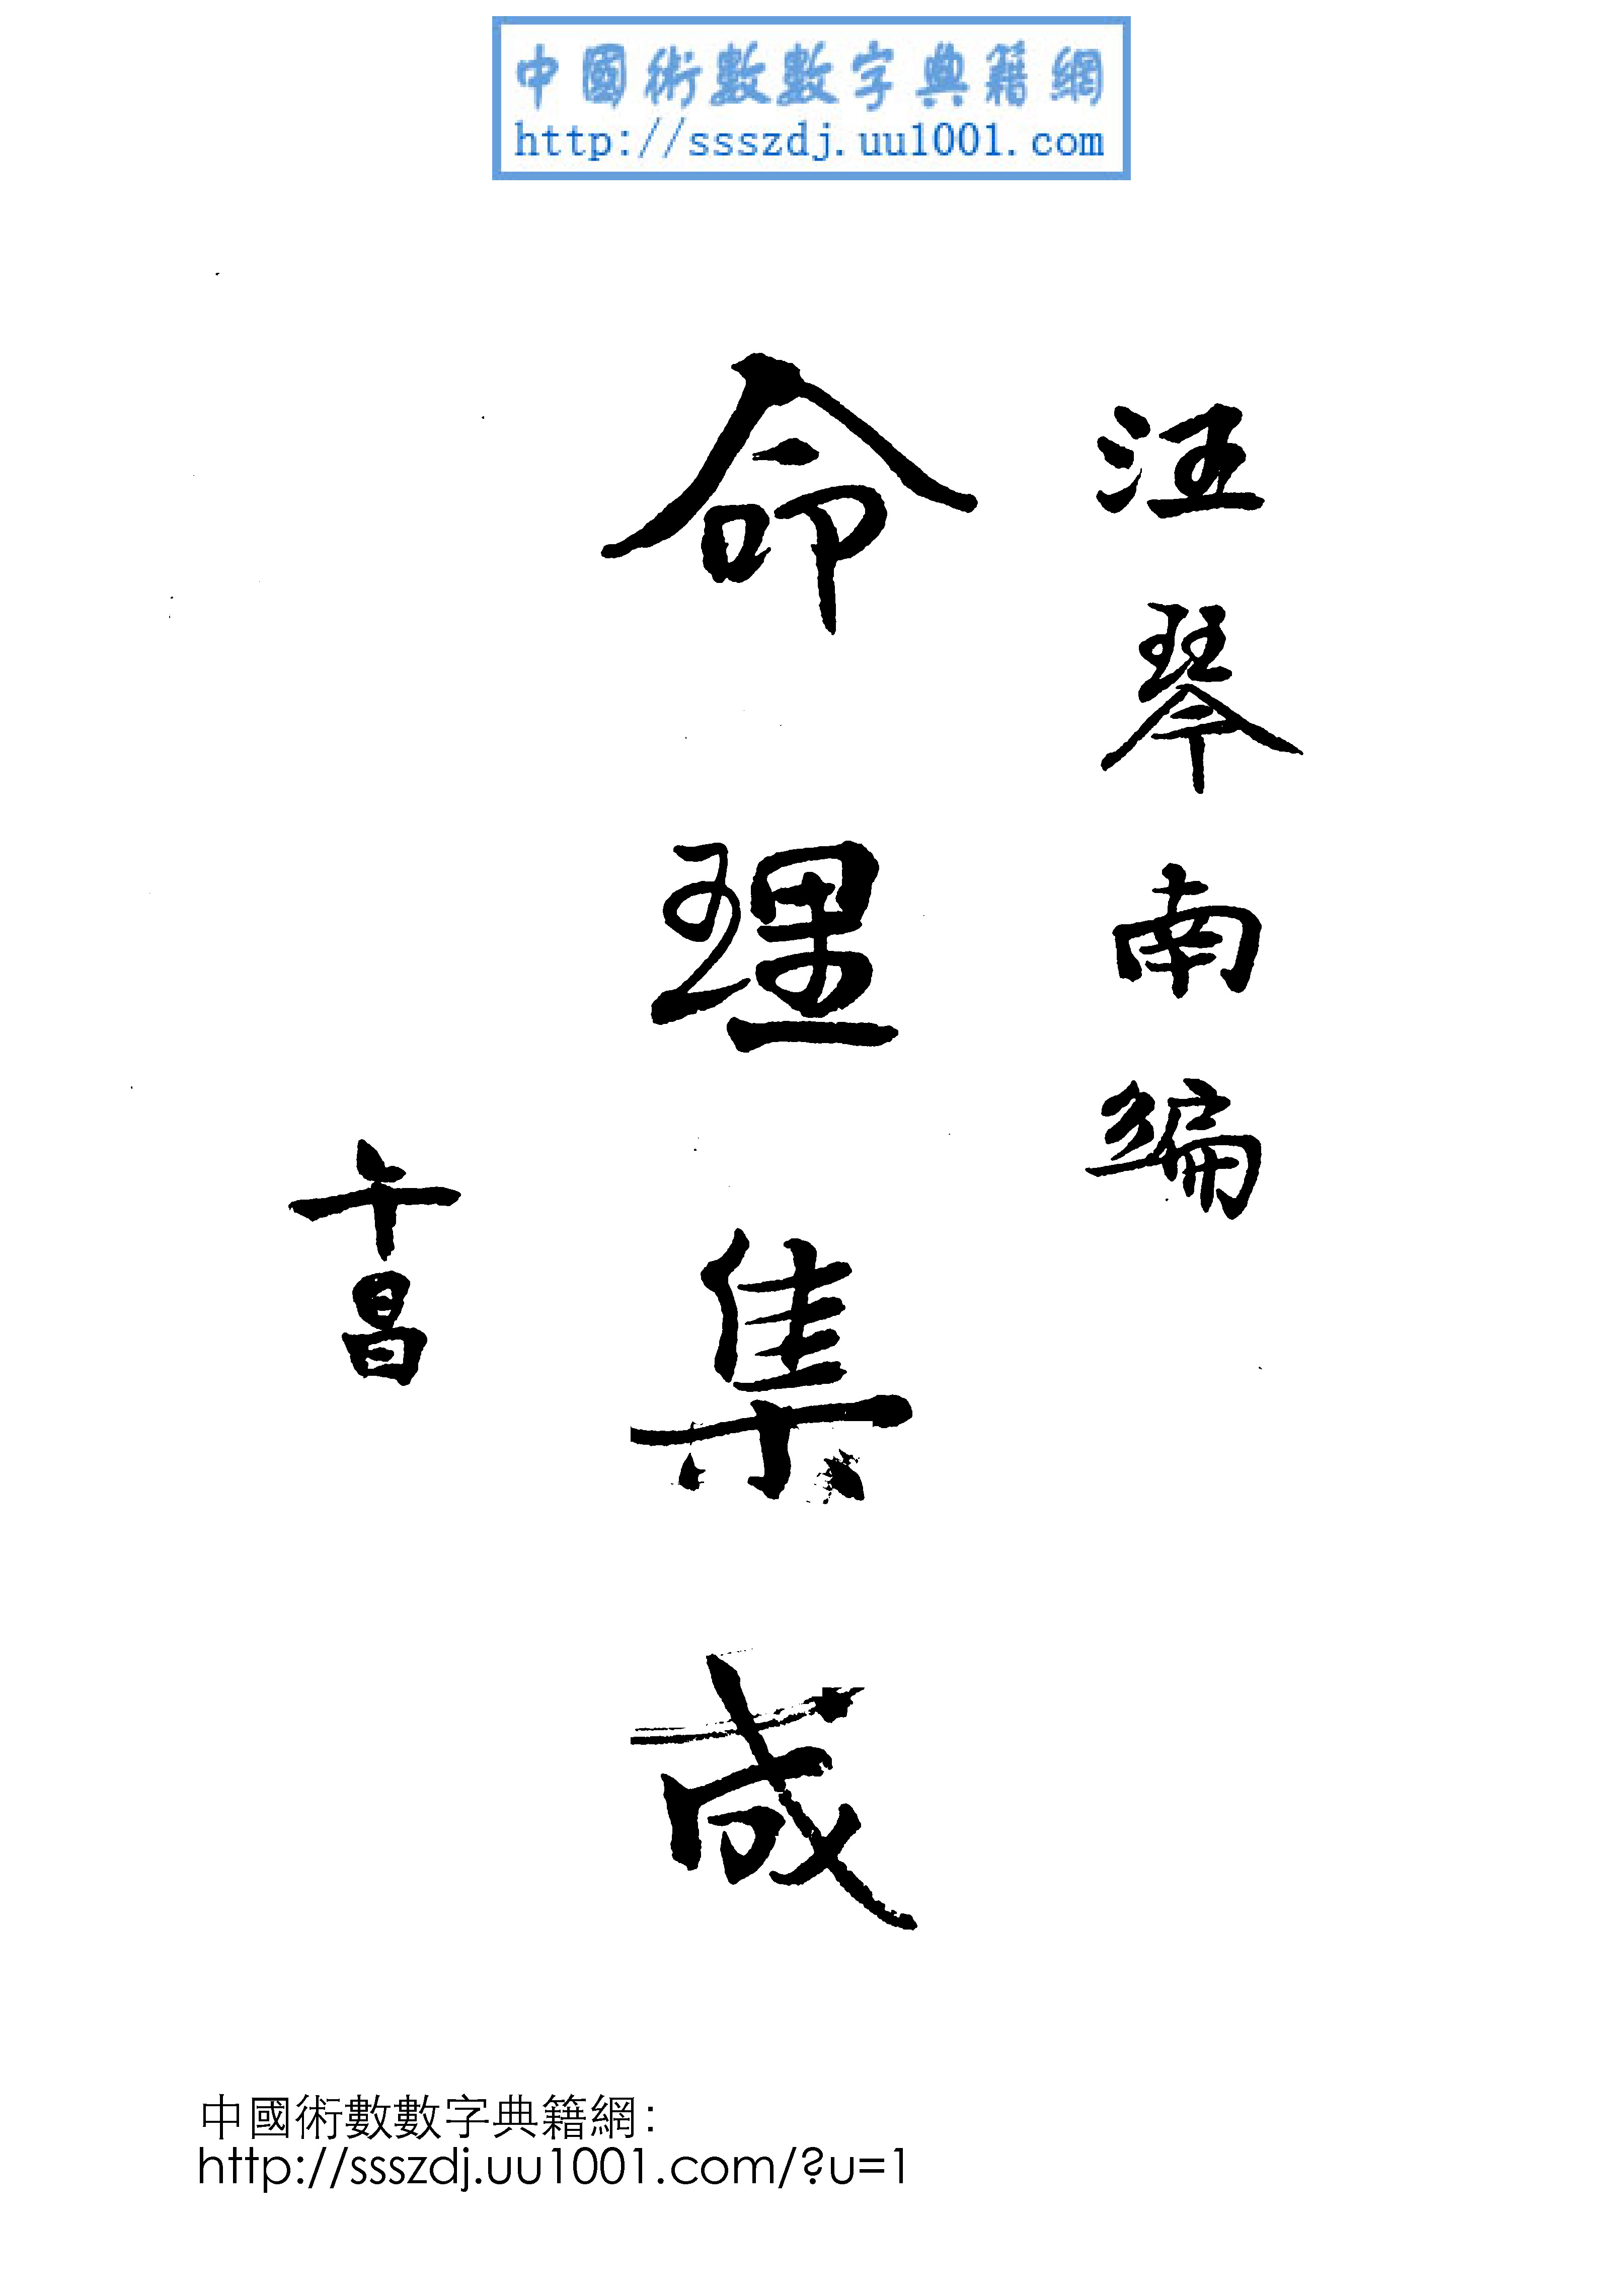 中國術數數字典籍網
http://ssszdj.uu1001.com
汪琴南编
命理集成
午昌
中國術數數字典籍網:
http://ssszdj.uu1001.com/?u=1